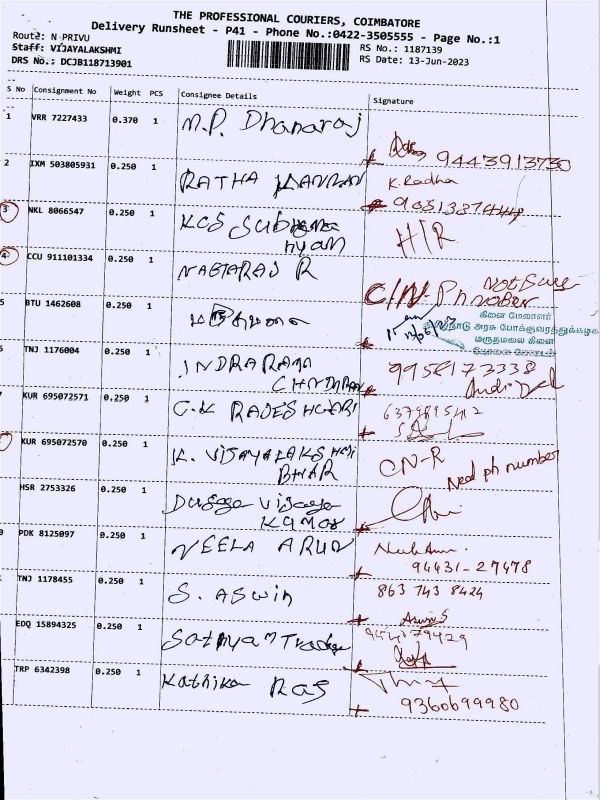 THE PROFESSIONAL COURIERS, COIMBATORE
Delivery Runsheet - P41 - Phone No.:0422-3505555 - Page No.:1
Route: N PRIVU
Staff: VIJAYALAKSHMI
DRS No.: DCJB118713901
RS No.: 1187139
RS Date: 13-Jun-2023
S No Consignment No Weight PCS Consignee Details Signature
1 VRR 7227433 0.370 1 M.P. Dhanaraj
9443913730
2 IXM 503805931 0.250 1 RATHA KANNAN K. Radha
3 NKL 8066547 0.250 1 KCS Subrama
nyam H/R
4 CCU 911101334 0.250 1 NAGARAJ R
C/N- Ph
5 BTU 1462608 0.250 1
கிளை மேலாளர்
தமிழ்நாடு அரசு போக்குவரத்துக்கழக
மருதமலை கிளை
6 TNJ 1176004 0.250 1 INDRARANI
9958173338
KUR 695072571 0.250 1 C.K RAJESHWARI
KUR 695072570 0.250 1 K. VIJAYALAKSHMI
BHAR CN-R Need ph number
HSR 2753326 0.250 1 Vijaya
Kumar
PDK 8125097 0.250 1 NEELA ARUN
94431-27478
TNJ 1178455 0.250 1 S. ASWIN 863 743 8424
Aswin S
EDQ 15894325 0.250 1 Sathyam Trade
TRP 6342398 0.250 1 Kathika Ras
9360699980